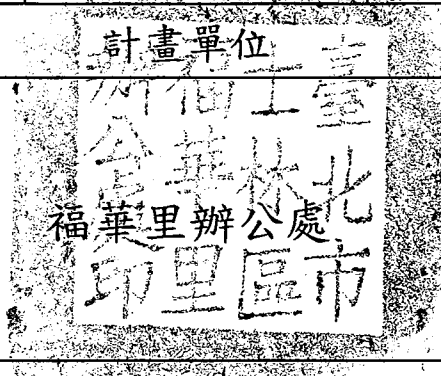 計畫單位
福華里辦公處
臺北市
士林區
福華里
辦公處印